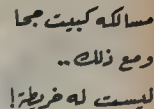 مسالكه كبيت جحا
ومع ذلك..
ليست له خريطة!